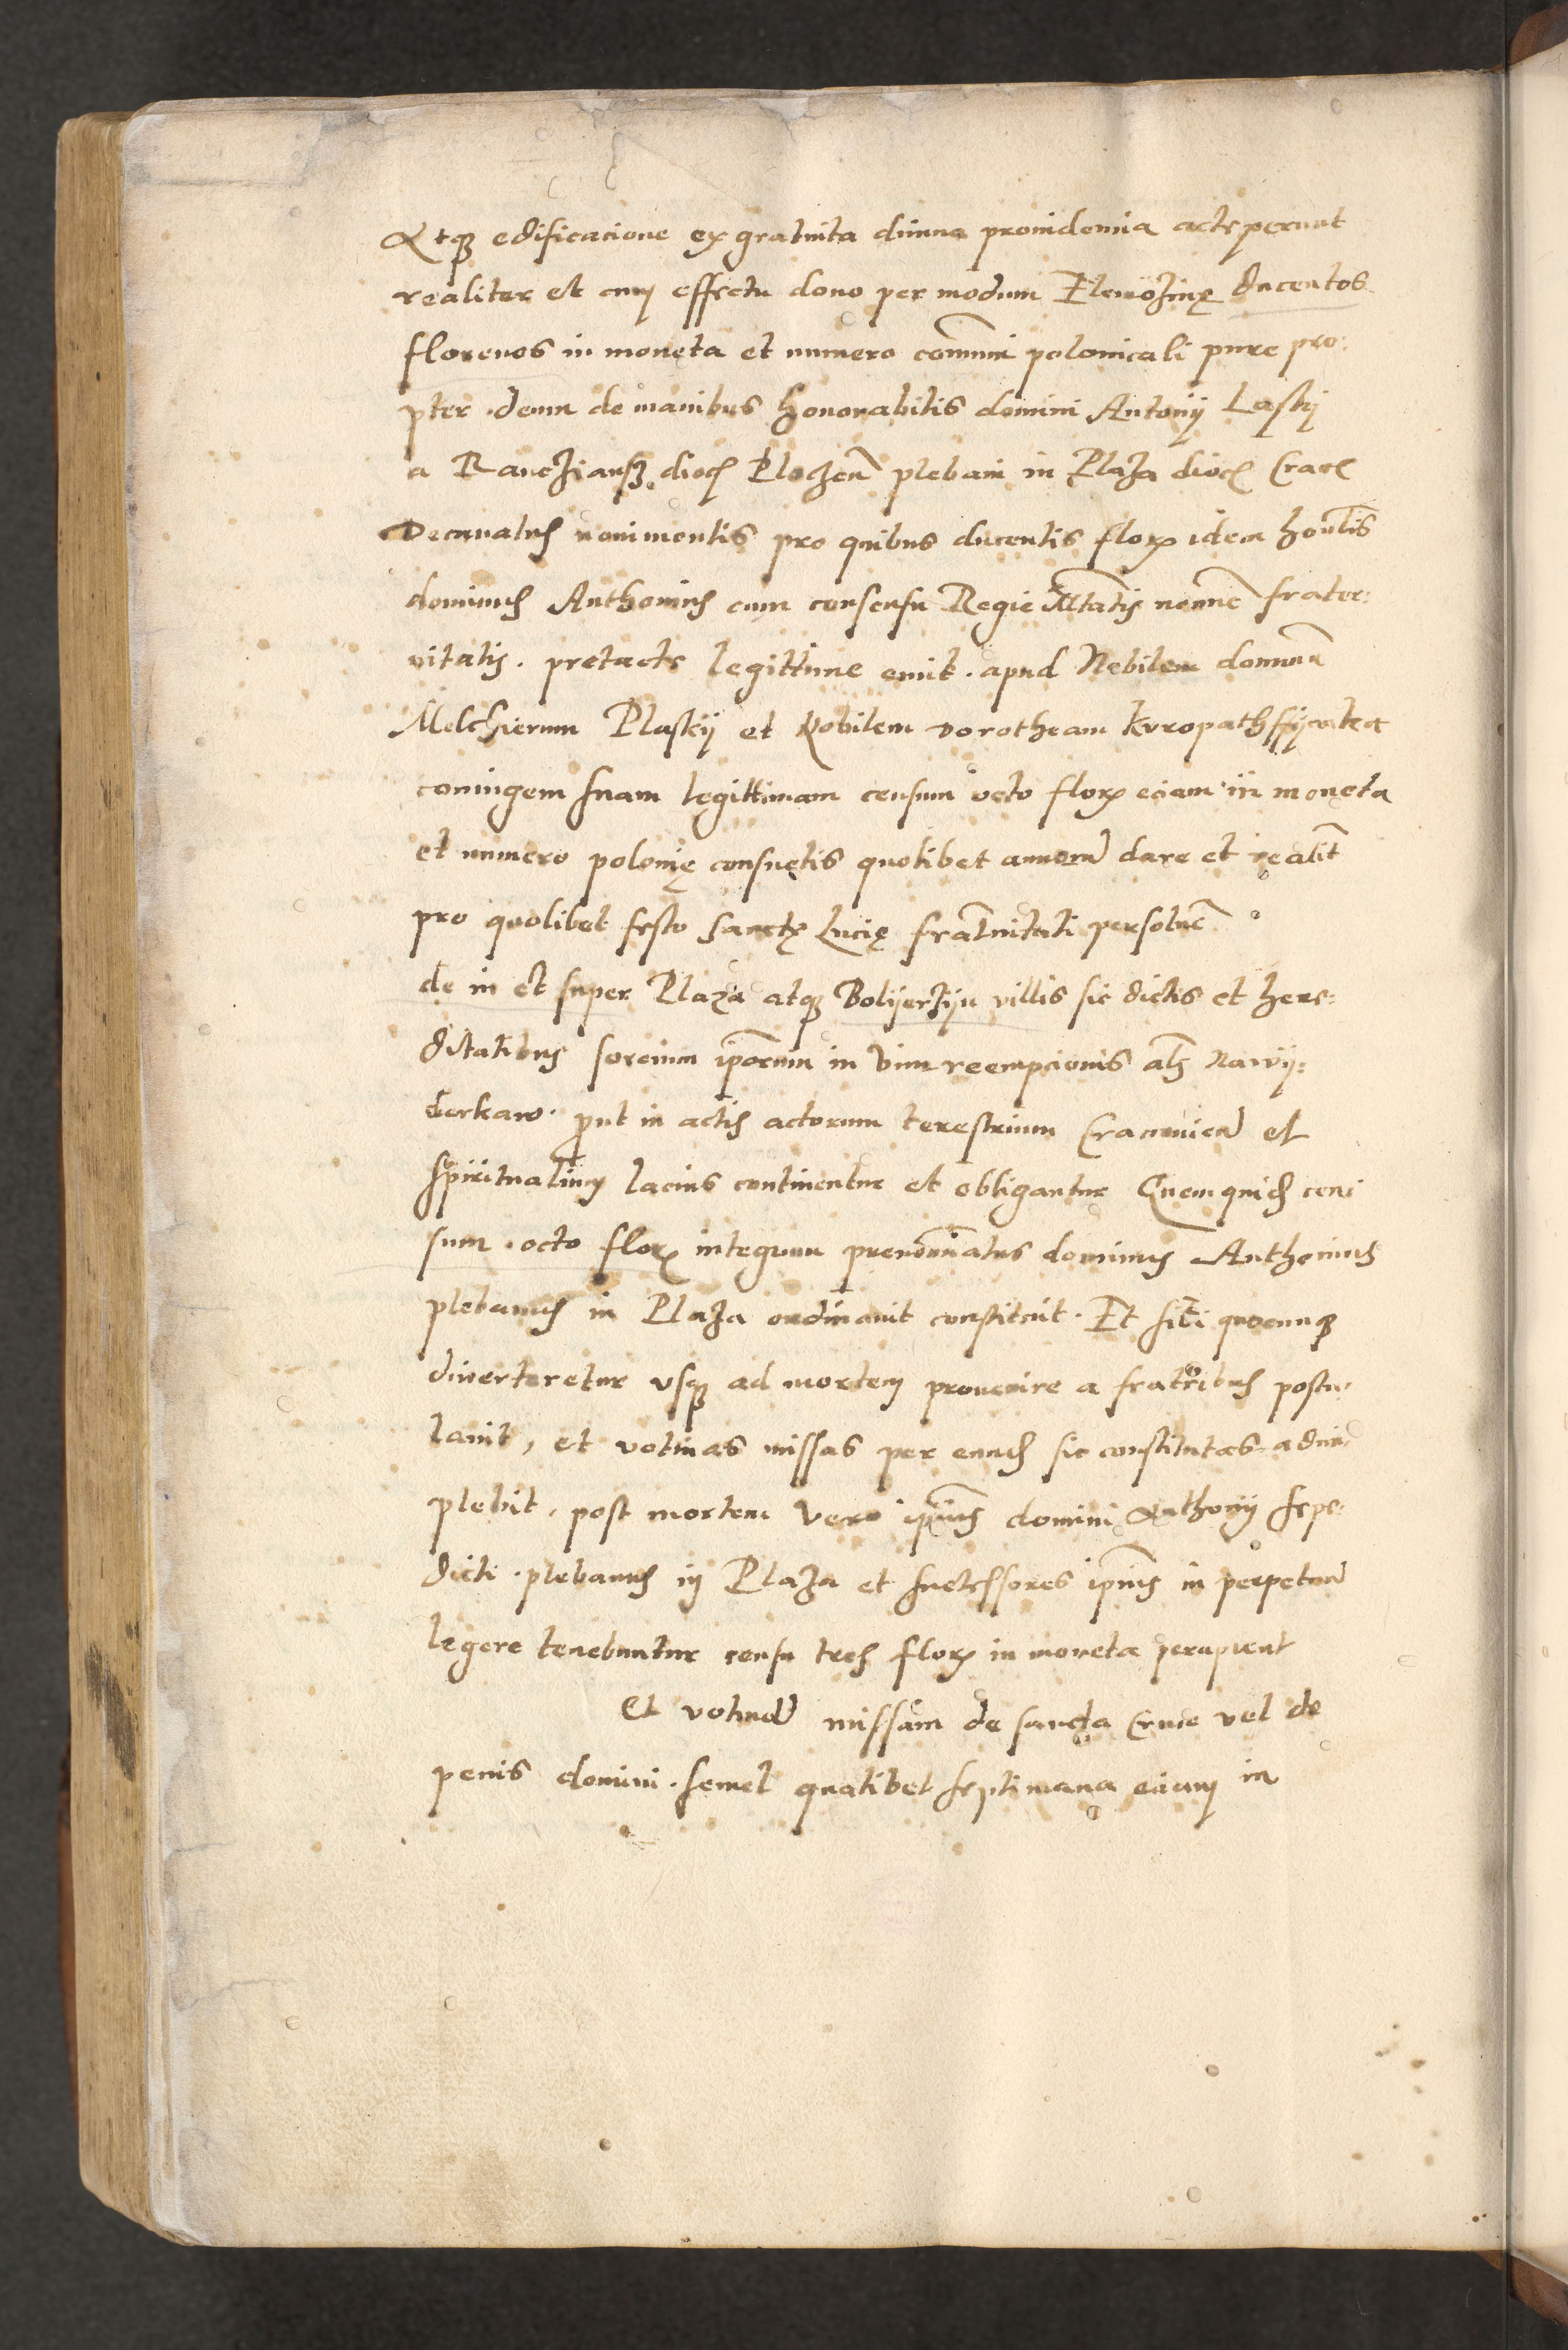 Atq₃ edificacione ex gratuita diuina prouidencia acceperunt
realiter et cum effectu dono per modum Elemozinę ducentos
florenos in moneta et numero com̃uni polonicali pure pro:
pter deum de manibus honorabilis domini Antonij Laskij
aRanczians₃ dioc̃ Ploczen̄ plebani in Plaza dioc̃ Crac̃
Decanatus nouimontis pro quibus ducentis flor̃ idem hon̄lis
dominus Anthonius cum consensu Regie M̃tatis no͠ine frater:
nitatis. pretacte legittime emit. apud Nobilem dominū
Melchierum Plaskij et Nobilem dorotheam kuropathffijcaka
coniugem suam legittimam censum octo flor̃ eciam in moneta
et numero polonię consuetis quolibet annorū dare et realit̃
pro quolibet festo sanctę Lucię frat̃nitati persoluē
de in et super Plaza atq₃ Bolijerzijn villis sic dictis et here:
ditatibus sorcium ip̄orum in vim reempcionis al̃s nawij:
derkaw. p̱ut in actis actorum terestrium Cracouien̄ et
spiritualium lacius continentur et obligantur Quemquid̃ cen:
sum. octo flor̃ integrum prenom̄inatus dominus Anthonius
plebanus in Plaza ordinauit constituit. Et sibi quocunq₃
diuerteretur vsq₃ ad mortem prouenire a fratribus postu,
lauit, et votiuas missas per eund̃ sic constitutas adim,
plebit, post mortem vero ip̄ius domini Anthonij sepe,
dicti. plebanus in Plaza et successores ip̄ius in perpetuū
legere tenebuntur censu tres flor̃ in moneta percipient
Et votiuā missam de sancta Cruce vel de
penis domini. semel qualibet septimana eciam in